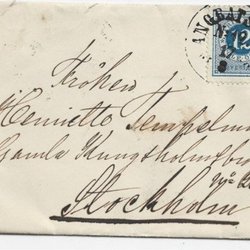 ANGBÅT
12
Fröken
Henriette Tempelman
Gamla Kungsholmsbro
Stockholm